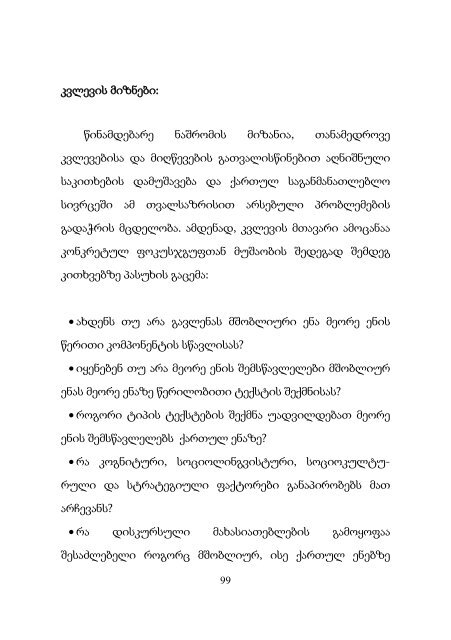 კვლევის მიზნები:
წინამდებარე ნაშრომის მიზანია, თანამედროვე
კვლევებისა და მიღწევების გათვალისწინებით აღნიშნული
საკითხების დამუშავება და ქართულ საგანმანათლებლო
სივრცეში ამ თვალსაზრისით არსებული პრობლემების
გადაჭრის მცდელობა. ამდენად, კვლევის მთავარი ამოცანაა
კონკრეტულ ფოკუსჯგუფთან მუშაობის შედეგად შემდეგ
კითხვებზე პასუხის გაცემა:
• ახდენს თუ არა გავლენას მშობლიური ენა მეორე ენის
წერითი კომპონენტის სწავლისას?
• იყენებენ თუ არა მეორე ენის შემსწავლელები მშობლიურ
ენას მეორე ენაზე წერილობითი ტექსტის შექმნისას?
• როგორი ტიპის ტექსტების შექმნა უადვილდებათ მეორე
ენის შემსწავლელებს ქართულ ენაზე?
• რა კოგნიტური, სოციოლინგვისტური, სოციოკულტუ-
რული და სტრატეგიული ფაქტორები განაპირობებს მათ
არჩევანს?
• რა დისკურსული მახასიათებლების გამოყოფაა
შესაძლებელი როგორც მშობლიურ, ისე ქართულ ენებზე
99